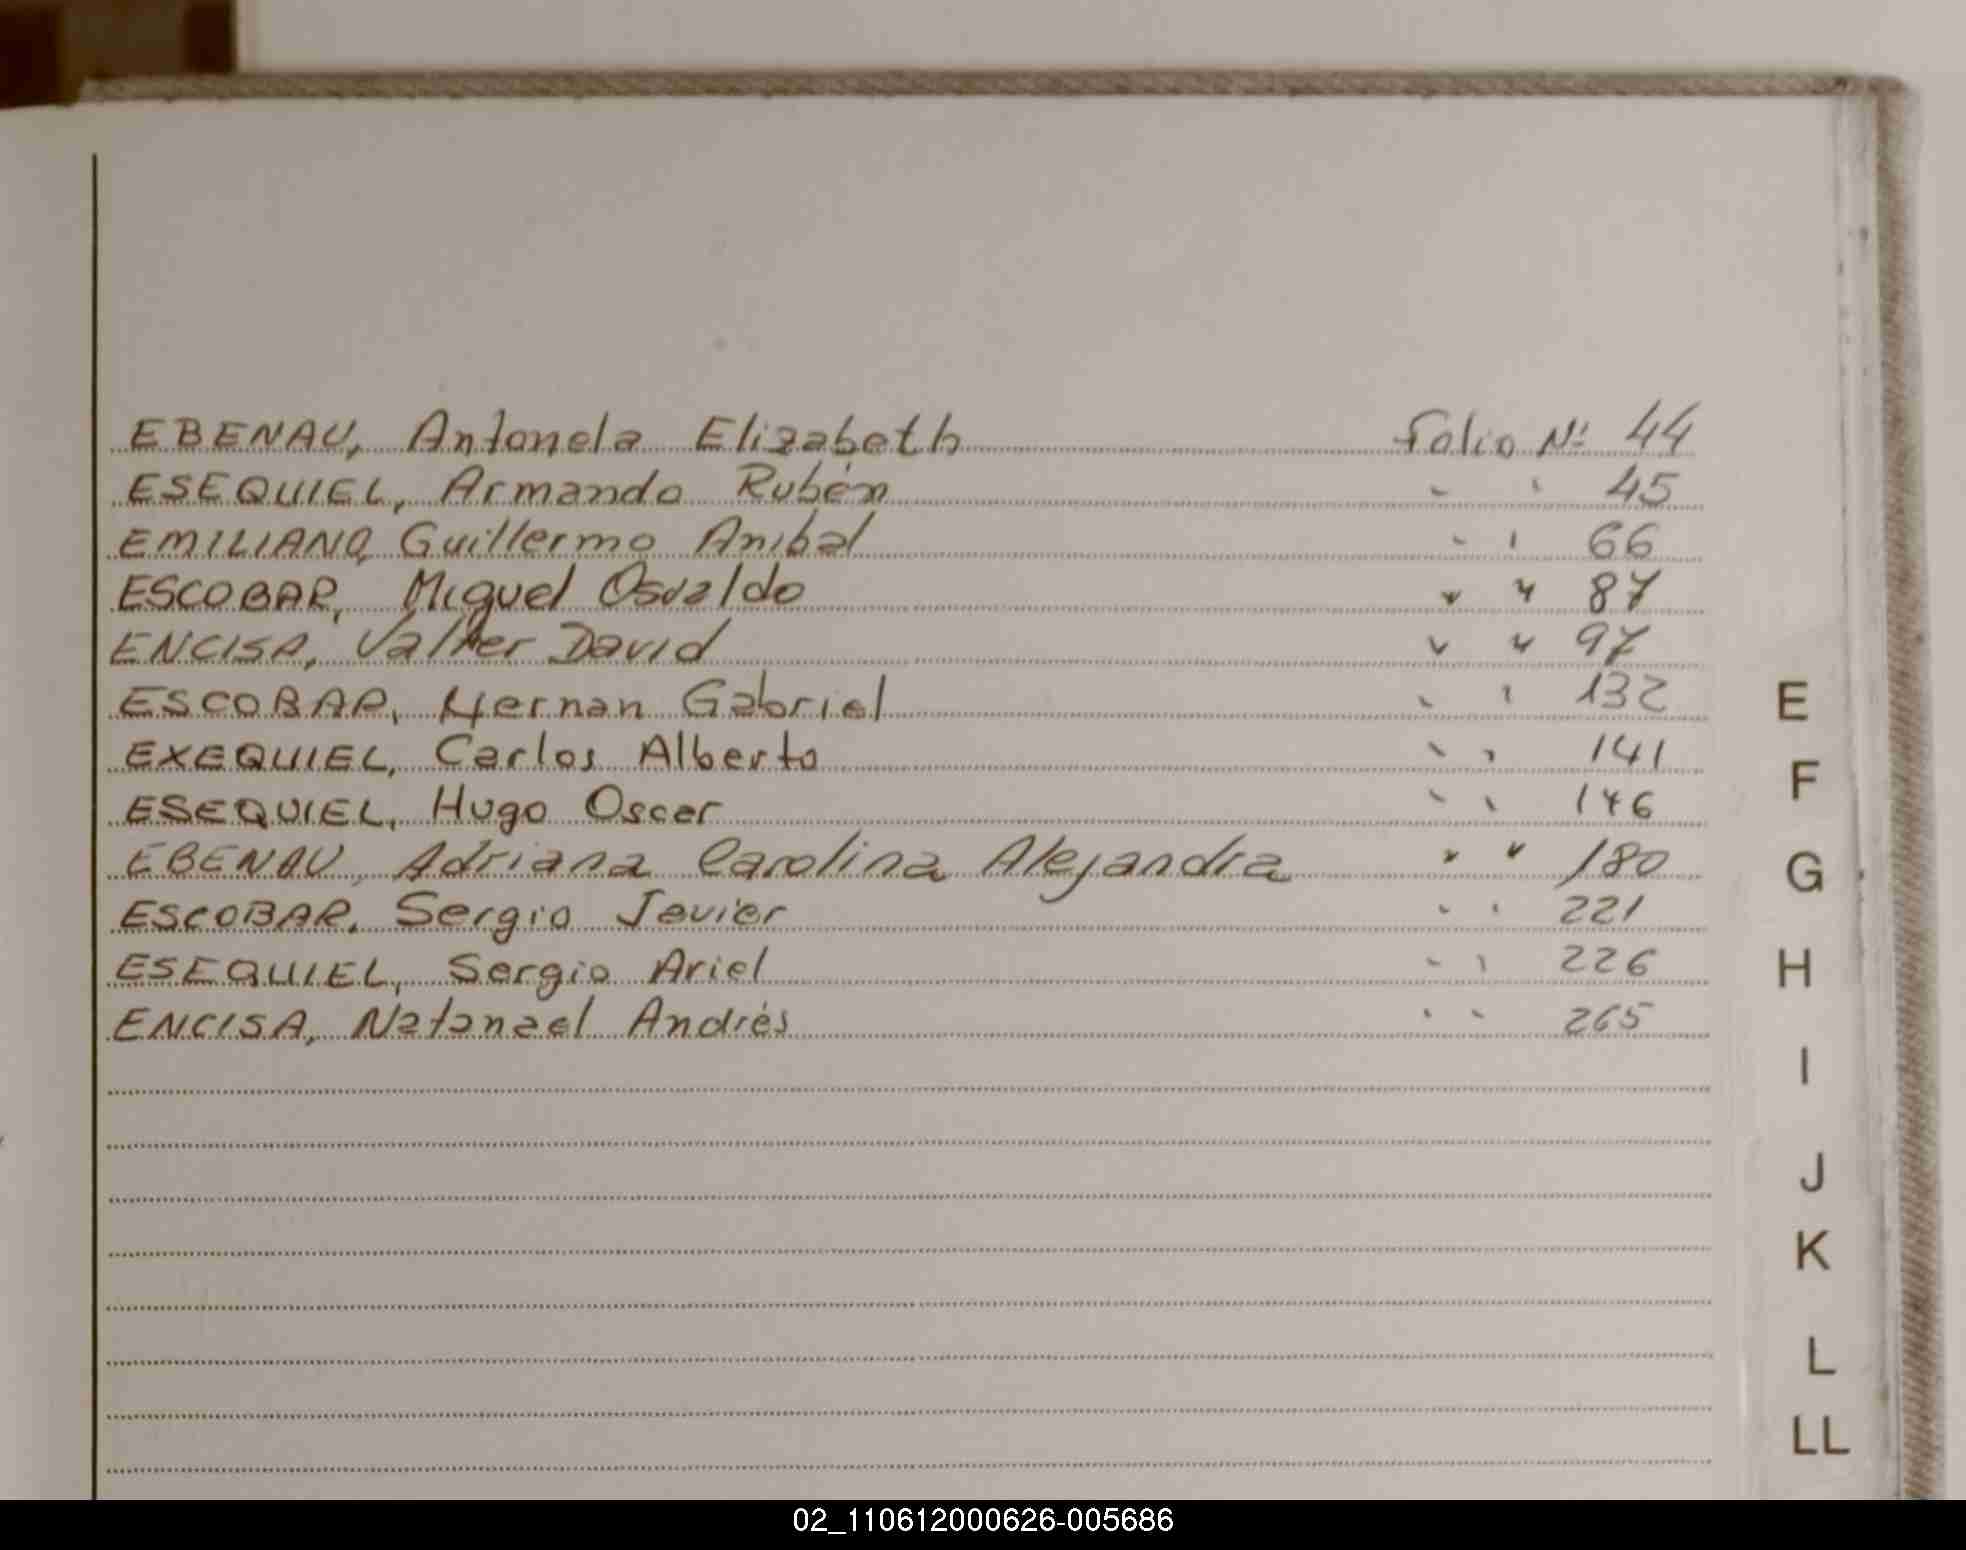 EBENAU, Antonela Elizabeth Folio Nº 44
ESEQUIEL, Armando Rubén " " 45
EMILIANO, Guillermo Anibal " " 66
ESCOBAR, Miguel Osvaldo " " 87
ENCISA, Valter David " " 97
ESCOBAR, Hernan Gabriel " " 132
EXEQUIEL, Carlos Alberto " " 141
ESEQUIEL, Hugo Oscar " " 146
EBENAU, Adriana Carolina Alejandra " " 180
ESCOBAR, Sergio Javier " " 221
ESEQUIEL, Sergio Ariel " " 226
ENCISA, Natanael Andrés " " 265
E
F
G
H
I
J
K
L
LL
02_110612000626-005686